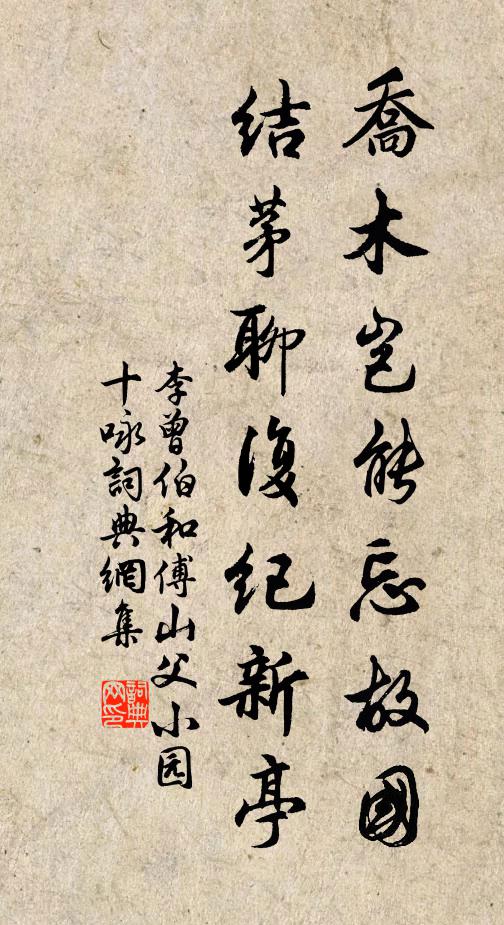 喬木岂能忘故國
結茅聊復纪新亭
李曾伯和傅山父小园
十咏詞典網集
詞典网印